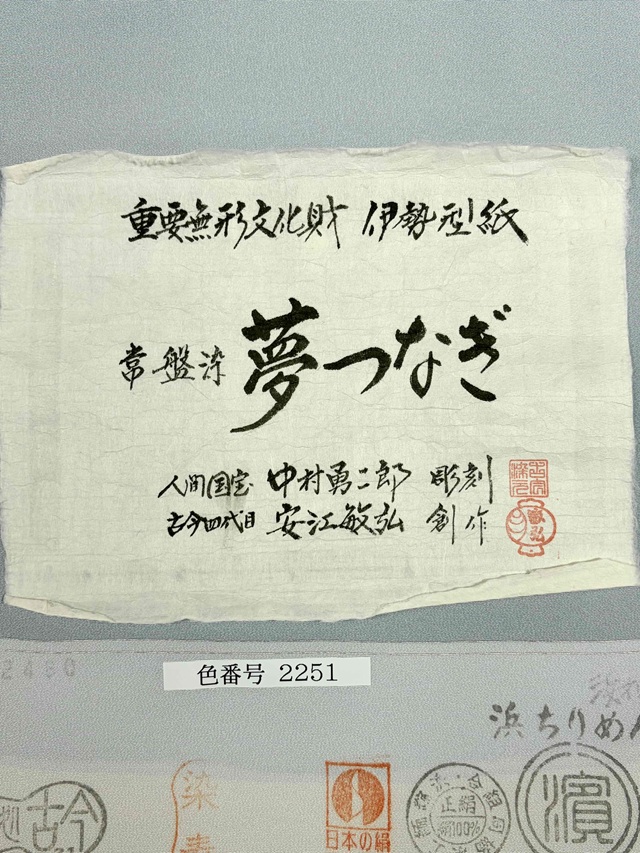 重要無形文化財 伊勢型紙
常盤染 夢つなぎ
人間国宝 中村勇二郎 彫刻
古今四代目 安江敏弘 創作
敏弘
2480
色番号 2251
浜ちりめん
古今
染
日本の絹
正絹
絹100%
濱